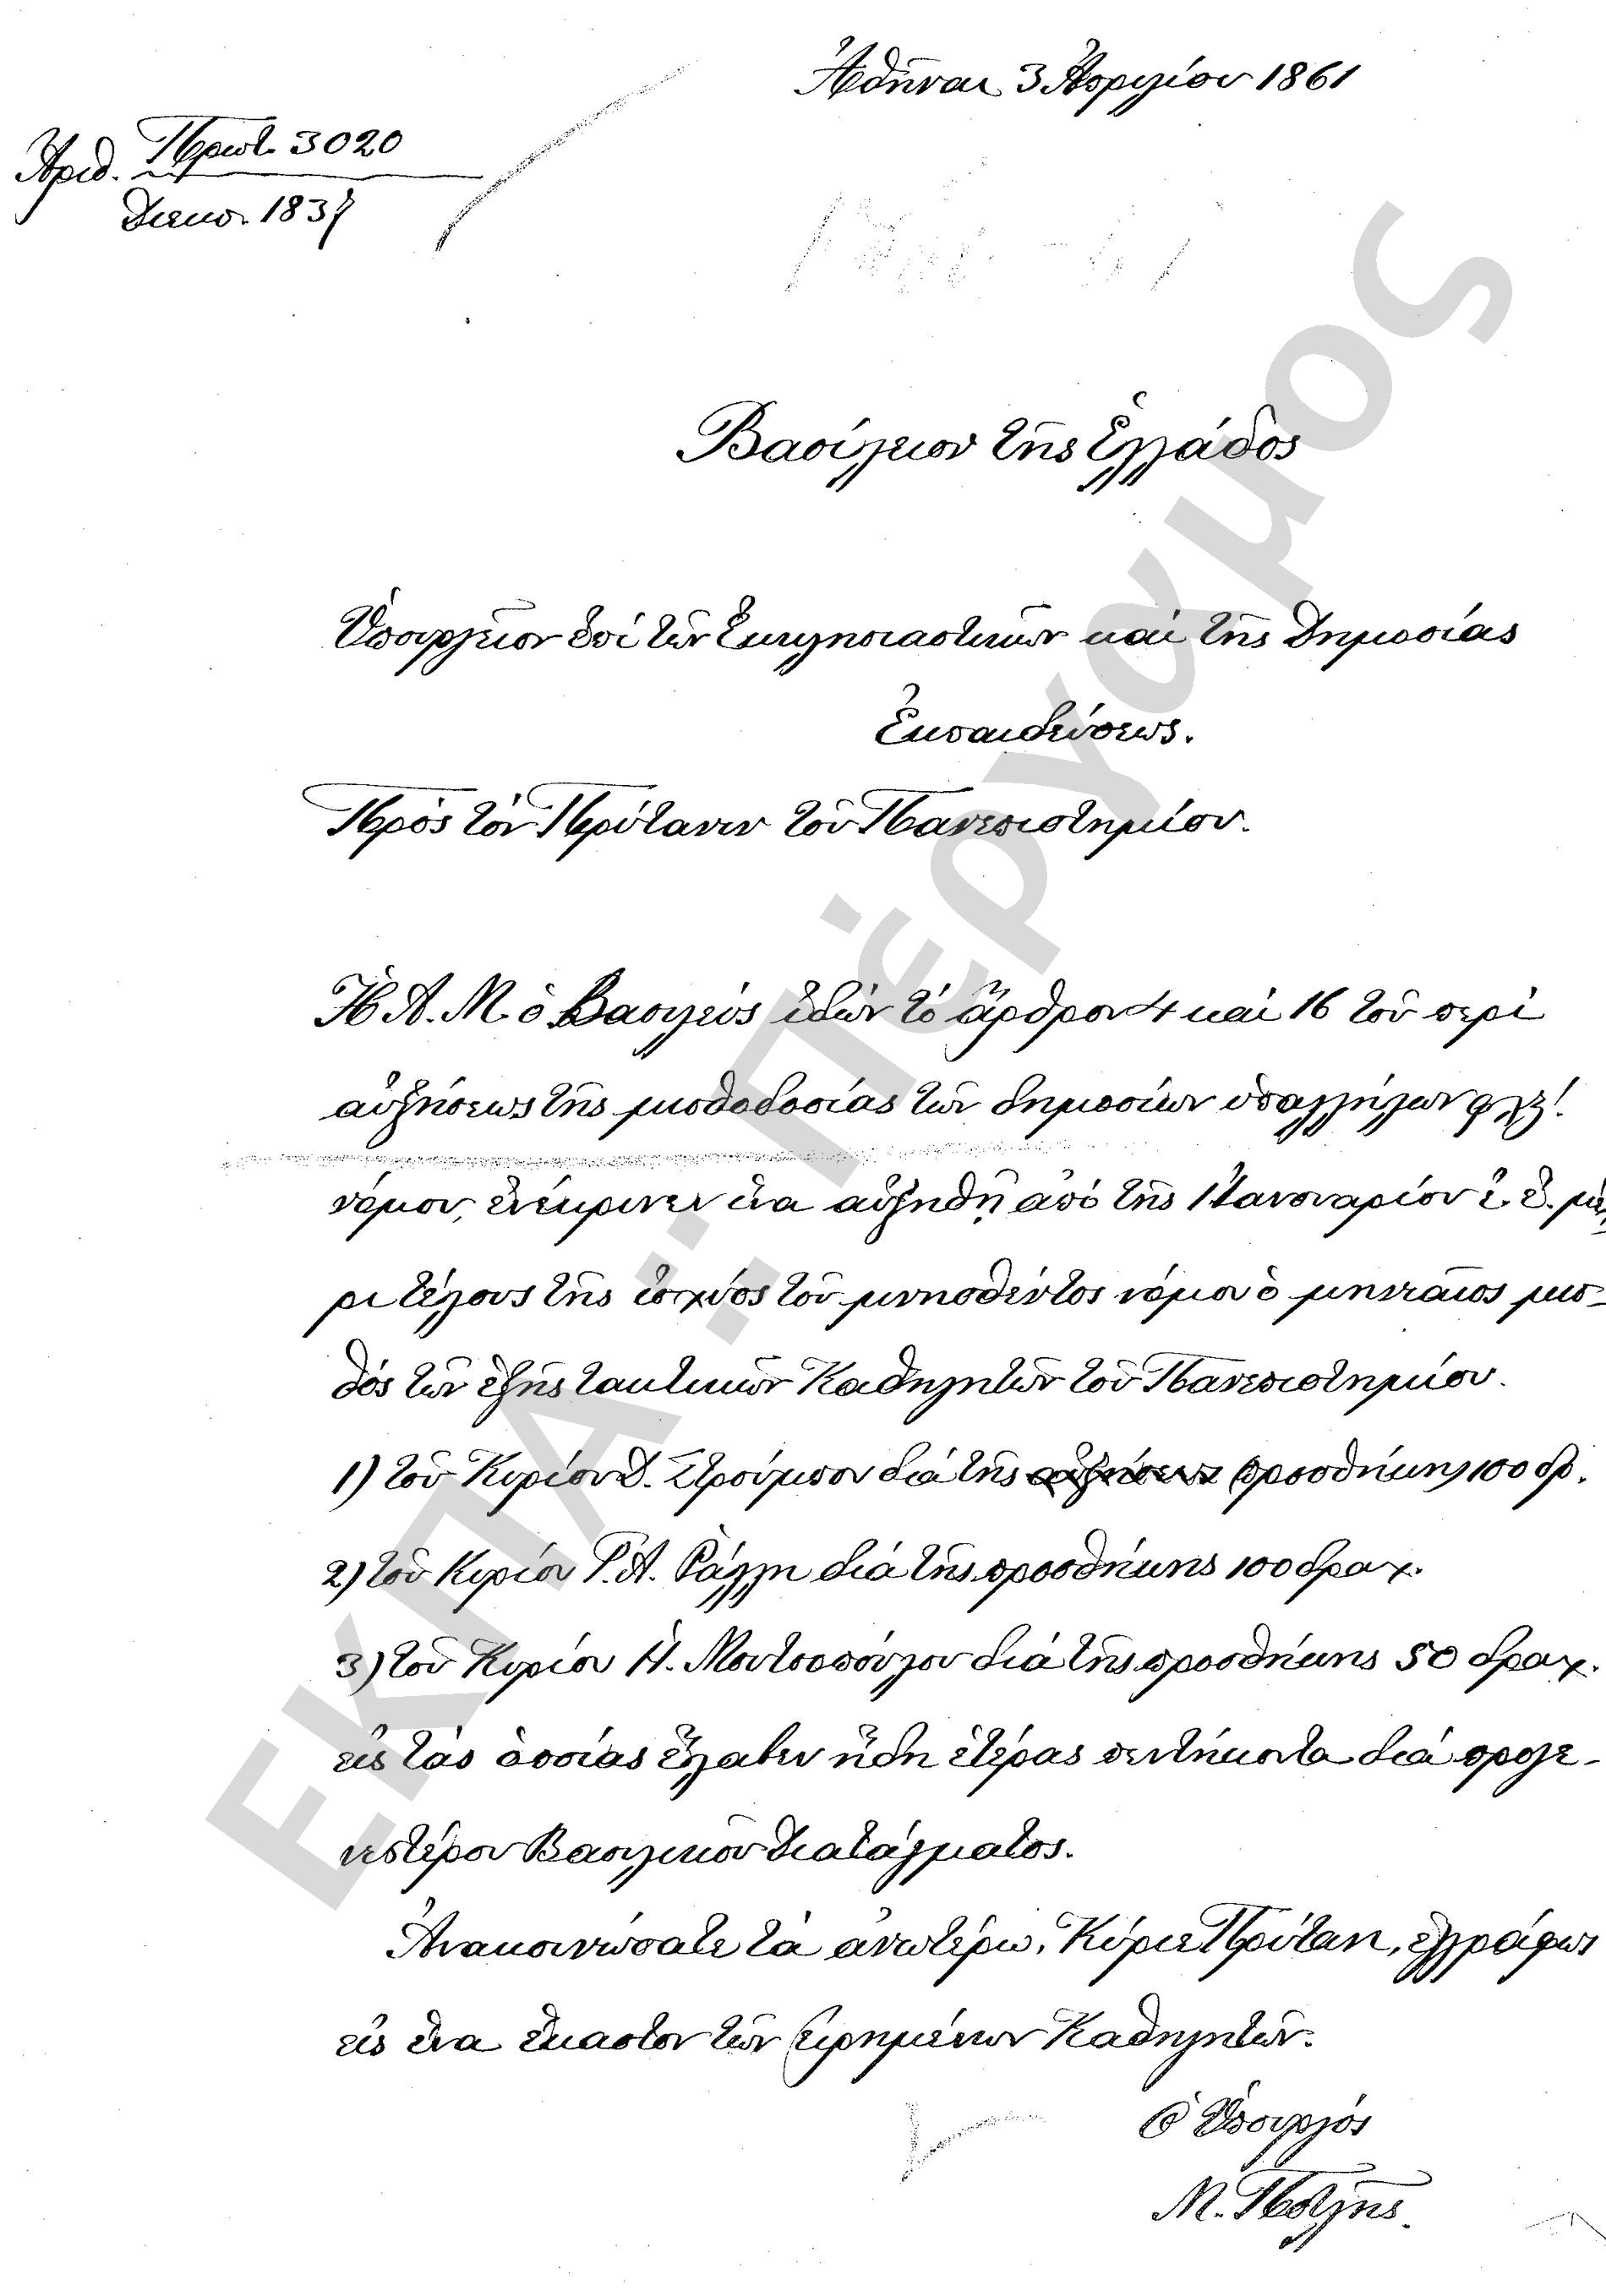 Ἀθῆναι 3 Ἀπριλίου 1861
Ἀριθ. Πρωτ. 3020
Διεκπ. 1837
Βασίλειον τῆς Ἑλλάδος
Ὑπουργεῖον ἐπὶ τῶν Ἐκκλησιαστικῶν καὶ τῆς Δημοσίας
Ἐκπαιδεύσεως.
Πρὸς τὸν Πρύτανιν τοῦ Πανεπιστημίου.
Ἡ Α. Μ. ὁ Βασιλεὺς ἰδὼν τὸ ἄρθρον 4 καὶ 16 τοῦ περὶ
αὐξήσεως τῆς μισθοδοσίας τῶν δημοσίων ὑπαλλήλων φλζ'.
νόμου, ἐνέκρινεν ἵνα αὐξηθῇ ἀπὸ τῆς 1 Ἰανουαρίου ἐ. ἔ. μέχ
ρι τέλους τῆς ἰσχύος τοῦ μνησθέντος νόμου ὁ μηνιαῖος μισ-
θὸς τῶν ἑξῆς τακτικῶν Καθηγητῶν τοῦ Πανεπιστημίου.
1) τοῦ Κυρίου Δ. Στρούμπου διὰ τῆς αὐξήσεως προσθήκης 100 δρ.
2) τοῦ Κυρίου Γ. Α. Ῥάλλη διὰ τῆς προσθήκης 100 δραχ.
3) τοῦ Κυρίου Ἠ. Μητσοπούλου διὰ τῆς προσθήκης 50 δραχ.
εἰς τὰς ὁποίας ἔλαβεν ἤδη ἑτέρας πεντήκοντα διὰ προγε-
νεστέρου Βασιλικοῦ Διατάγματος.
Ἀνακοινώσατε τὰ ἀνωτέρω, Κύριε Πρύτανι, ἐγγράφως
εἰς ἕνα ἕκαστον τῶν εἰρημένων Καθηγητῶν.
Ὁ Ὑπουργὸς
Μ. Ποτλῆς
ΕΚΠΑ: Πέργαμος